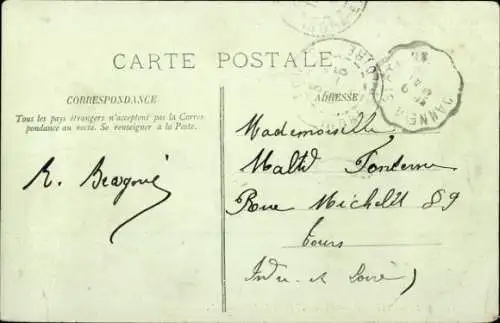 CARTE POSTALE
CORRESPONDANCE
Tous les pays étrangers n'acceptent pas la Corres-
pondance au recto. Se renseigner à la Poste.
ADRESSE
Mademoiselle
Rue Michelet 89
Tours
Indre et Loire)